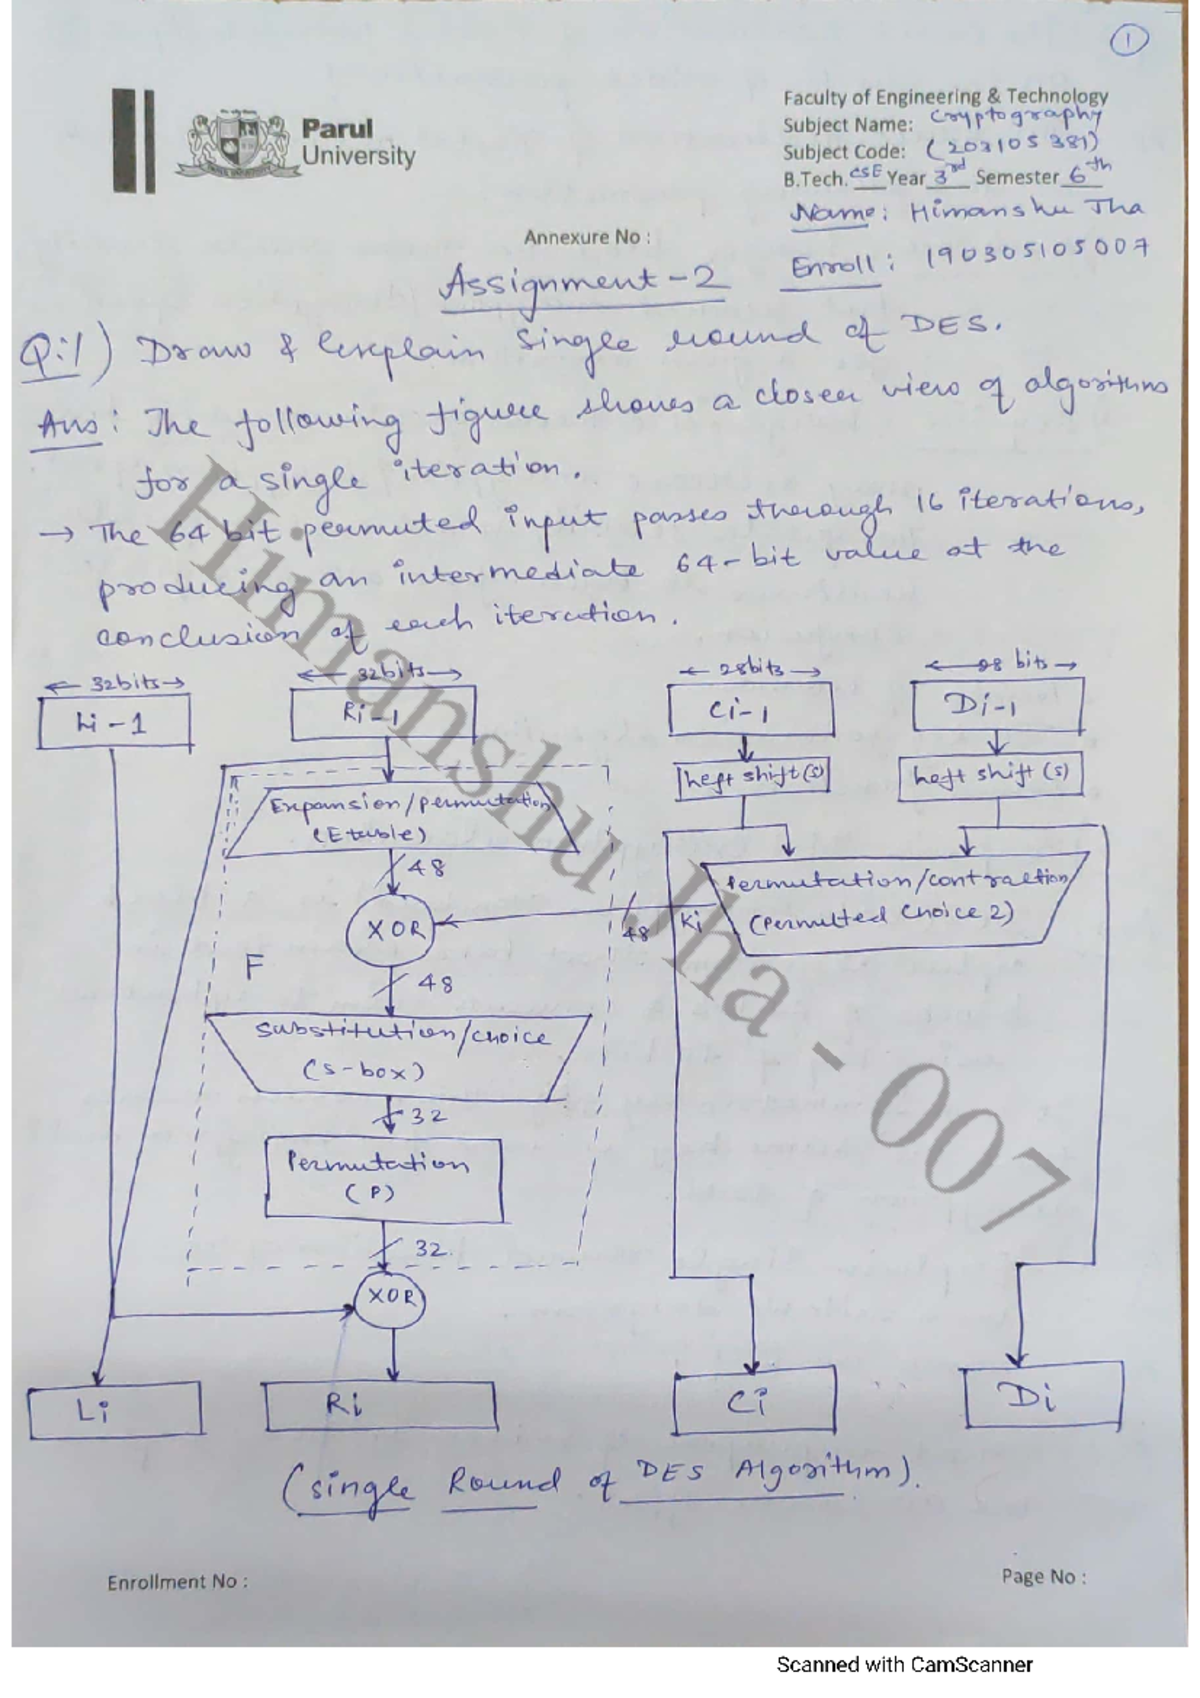 1
Parul
University
Faculty of Engineering & Technology
Subject Name: Cryptography
Subject Code: (203105381)
B.Tech. CSE Year 3rd Semester 6th
Name: Himanshu Jha
Enroll: 190305105007
Annexure No :
Assignment-2
Q:1) Draw & Explain Single round of DES.
Ans: The following figure shows a closer view of algorithms
for a single iteration.
→ The 64 bit permuted input passes through 16 iterations,
producing an intermediate 64-bit value at the
conclusion of each iteration.
← 32bits→ ← 32bits→ ← 28bits → ← 28 bits →
Li-1 Ri-1 Ci-1 Di-1
Left shift(s) Left shift(s)
Expansion/permutation
(E table)
48
Permutation/contraction
(Permuted Choice 2)
XOR 48 Ki
F
48
Substitution/choice
(S-box)
32
Permutation
(P)
32
XOR
Li Ri Ci Di
(single Round of DES Algorithm).
Himanshu Jha - 007
Enrollment No :
Page No :
Scanned with CamScanner